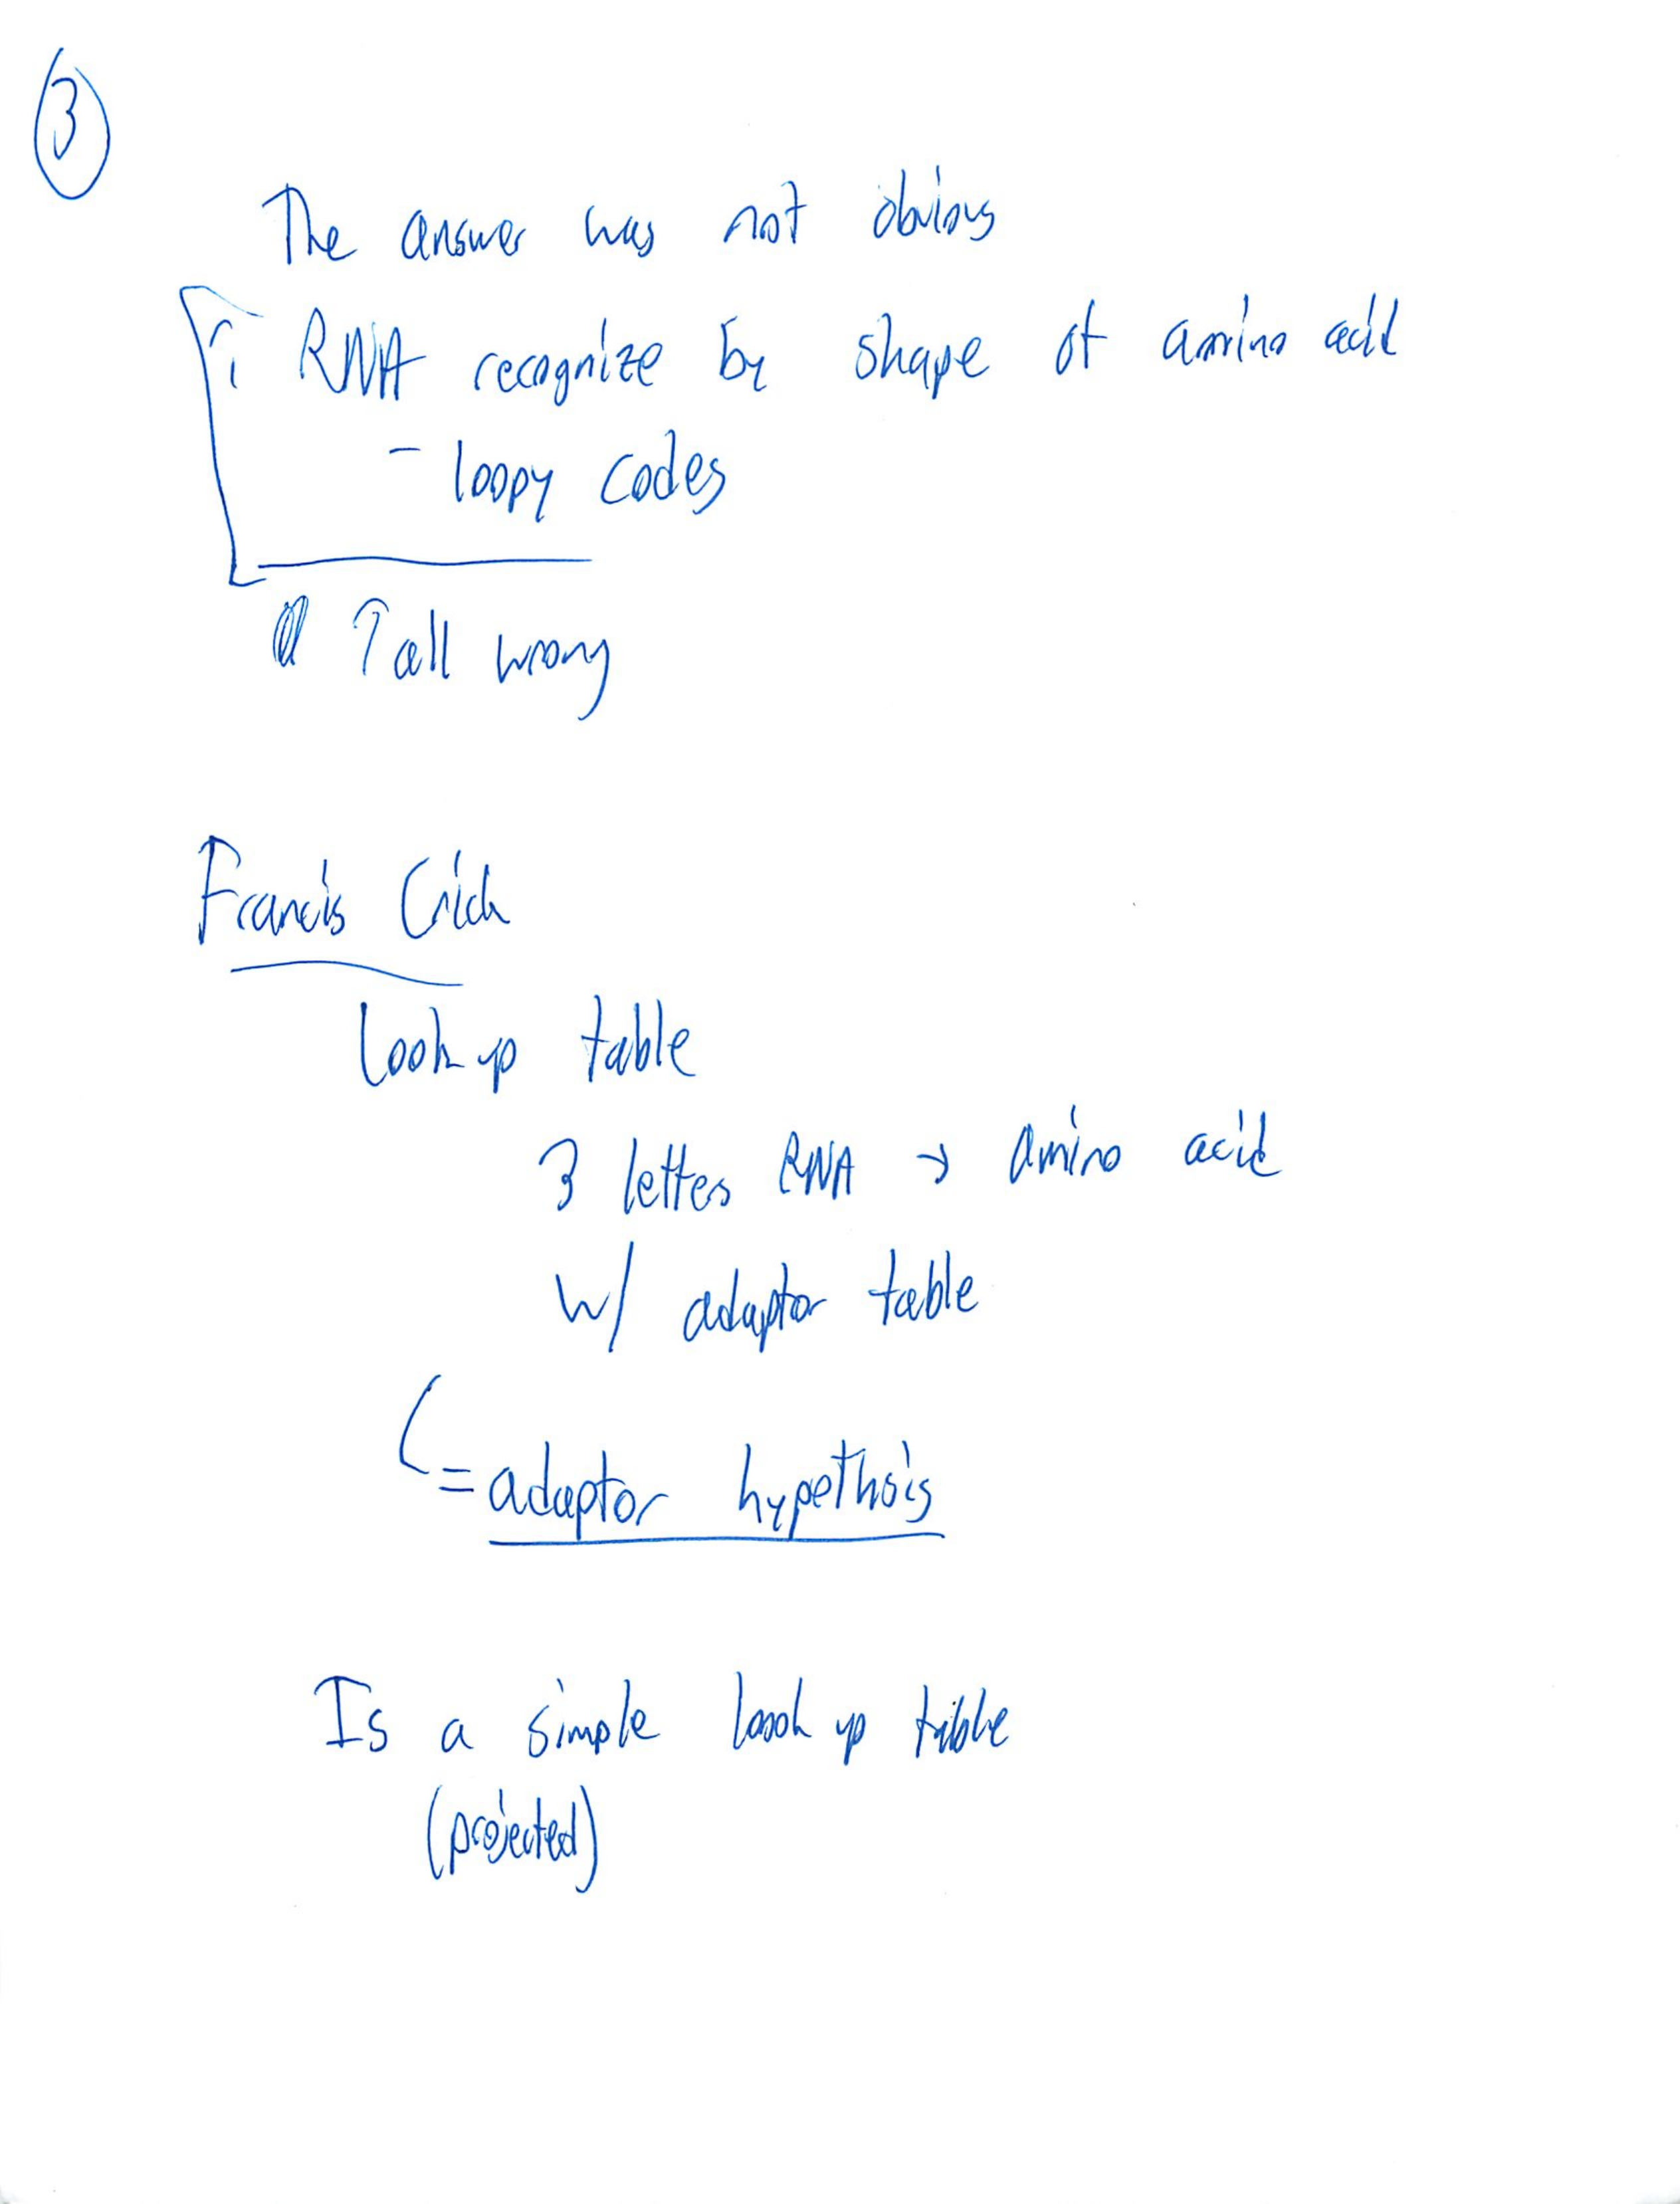 3
The answer was not obvious
RNA recognize by shape of amino acid
- loopy codes
↑ all wrong
Francis Crick
Look up table
3 letters RNA → amino acid
w/ adaptor table
= adaptor hypethsis
Is a simple look up table
(projected)